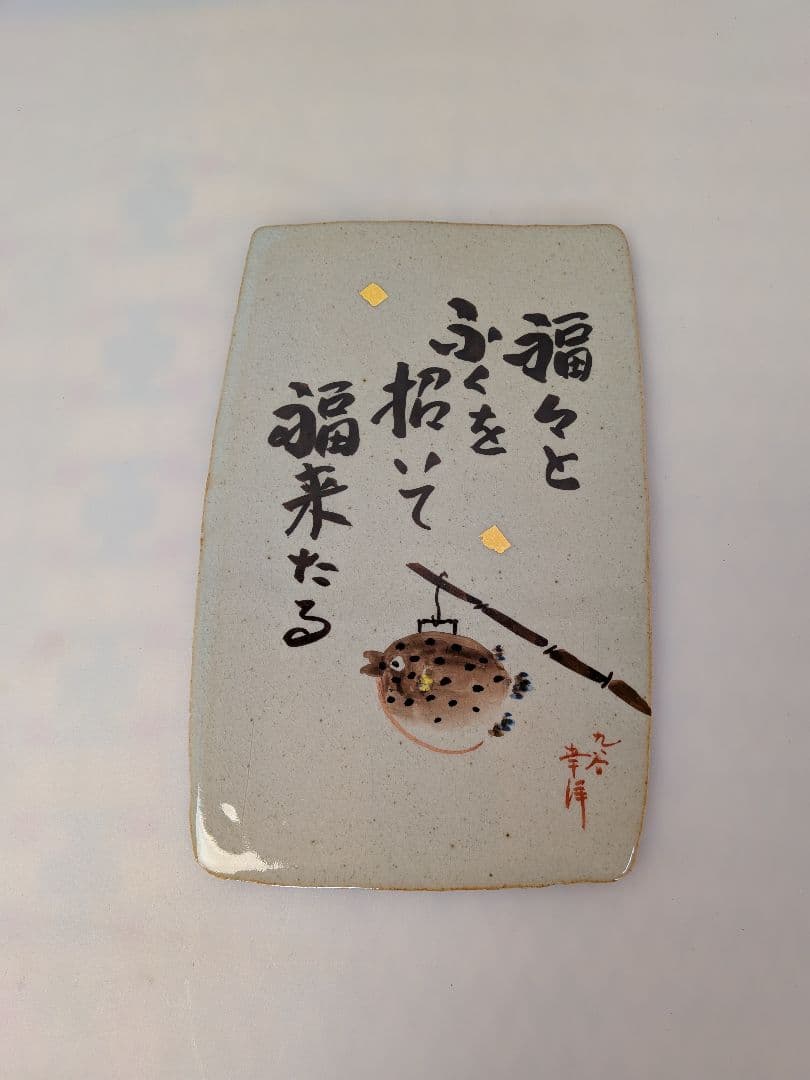 福々と
ふくを
招いて
福来たる
九谷
幸洋